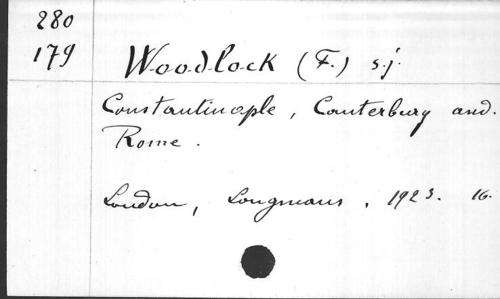 280
179 Woodlock (F.) s.j.
Constantinople, Canterbury and.
Rome.
London, Longmans, 1923. 16.